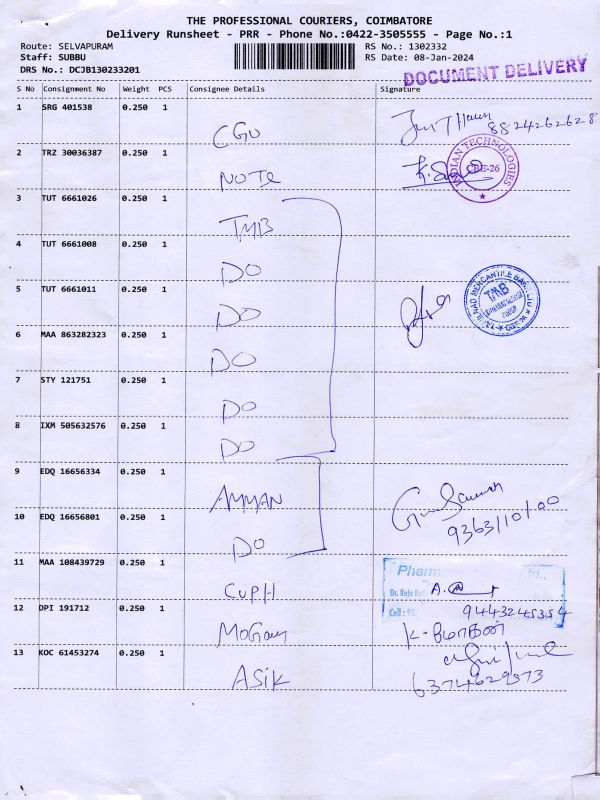 THE PROFESSIONAL COURIERS, COIMBATORE
Delivery Runsheet - PRR - Phone No.:0422-3505555 - Page No.:1
Route: SELVAPURAM RS No.: 1302332
Staff: SUBBU RS Date: 08-Jan-2024
DRS No.: DCJB130233201
DOCUMENT DELIVERY
S No Consignment No Weight PCS Consignee Details Signature
1 SRG 401538 0.250 1
CGU 8824262628
2 TRZ 30036387 0.250 1
NOTE
INDIAN TECHNOLOGIES
CBE-26
3 TUT 6661026 0.250 1
TMB
4 TUT 6661008 0.250 1
DO
5 TUT 6661011 0.250 1
DO
TMB
6 MAA 863282323 0.250 1
DO
7 STY 121751 0.250 1
DO
8 IXM 505632576 0.250 1
DO
9 EDQ 16656334 0.250 1
AMMAN
10 EDQ 16656801 0.250 1
DO 9363110100
11 MAA 108439729 0.250 1
Pharm
Dr. Raju
CUPH A.
Cell :
12 DPI 191712 0.250 1
9443245354
13 KOC 61453274 0.250 1
ASIK 6374629573